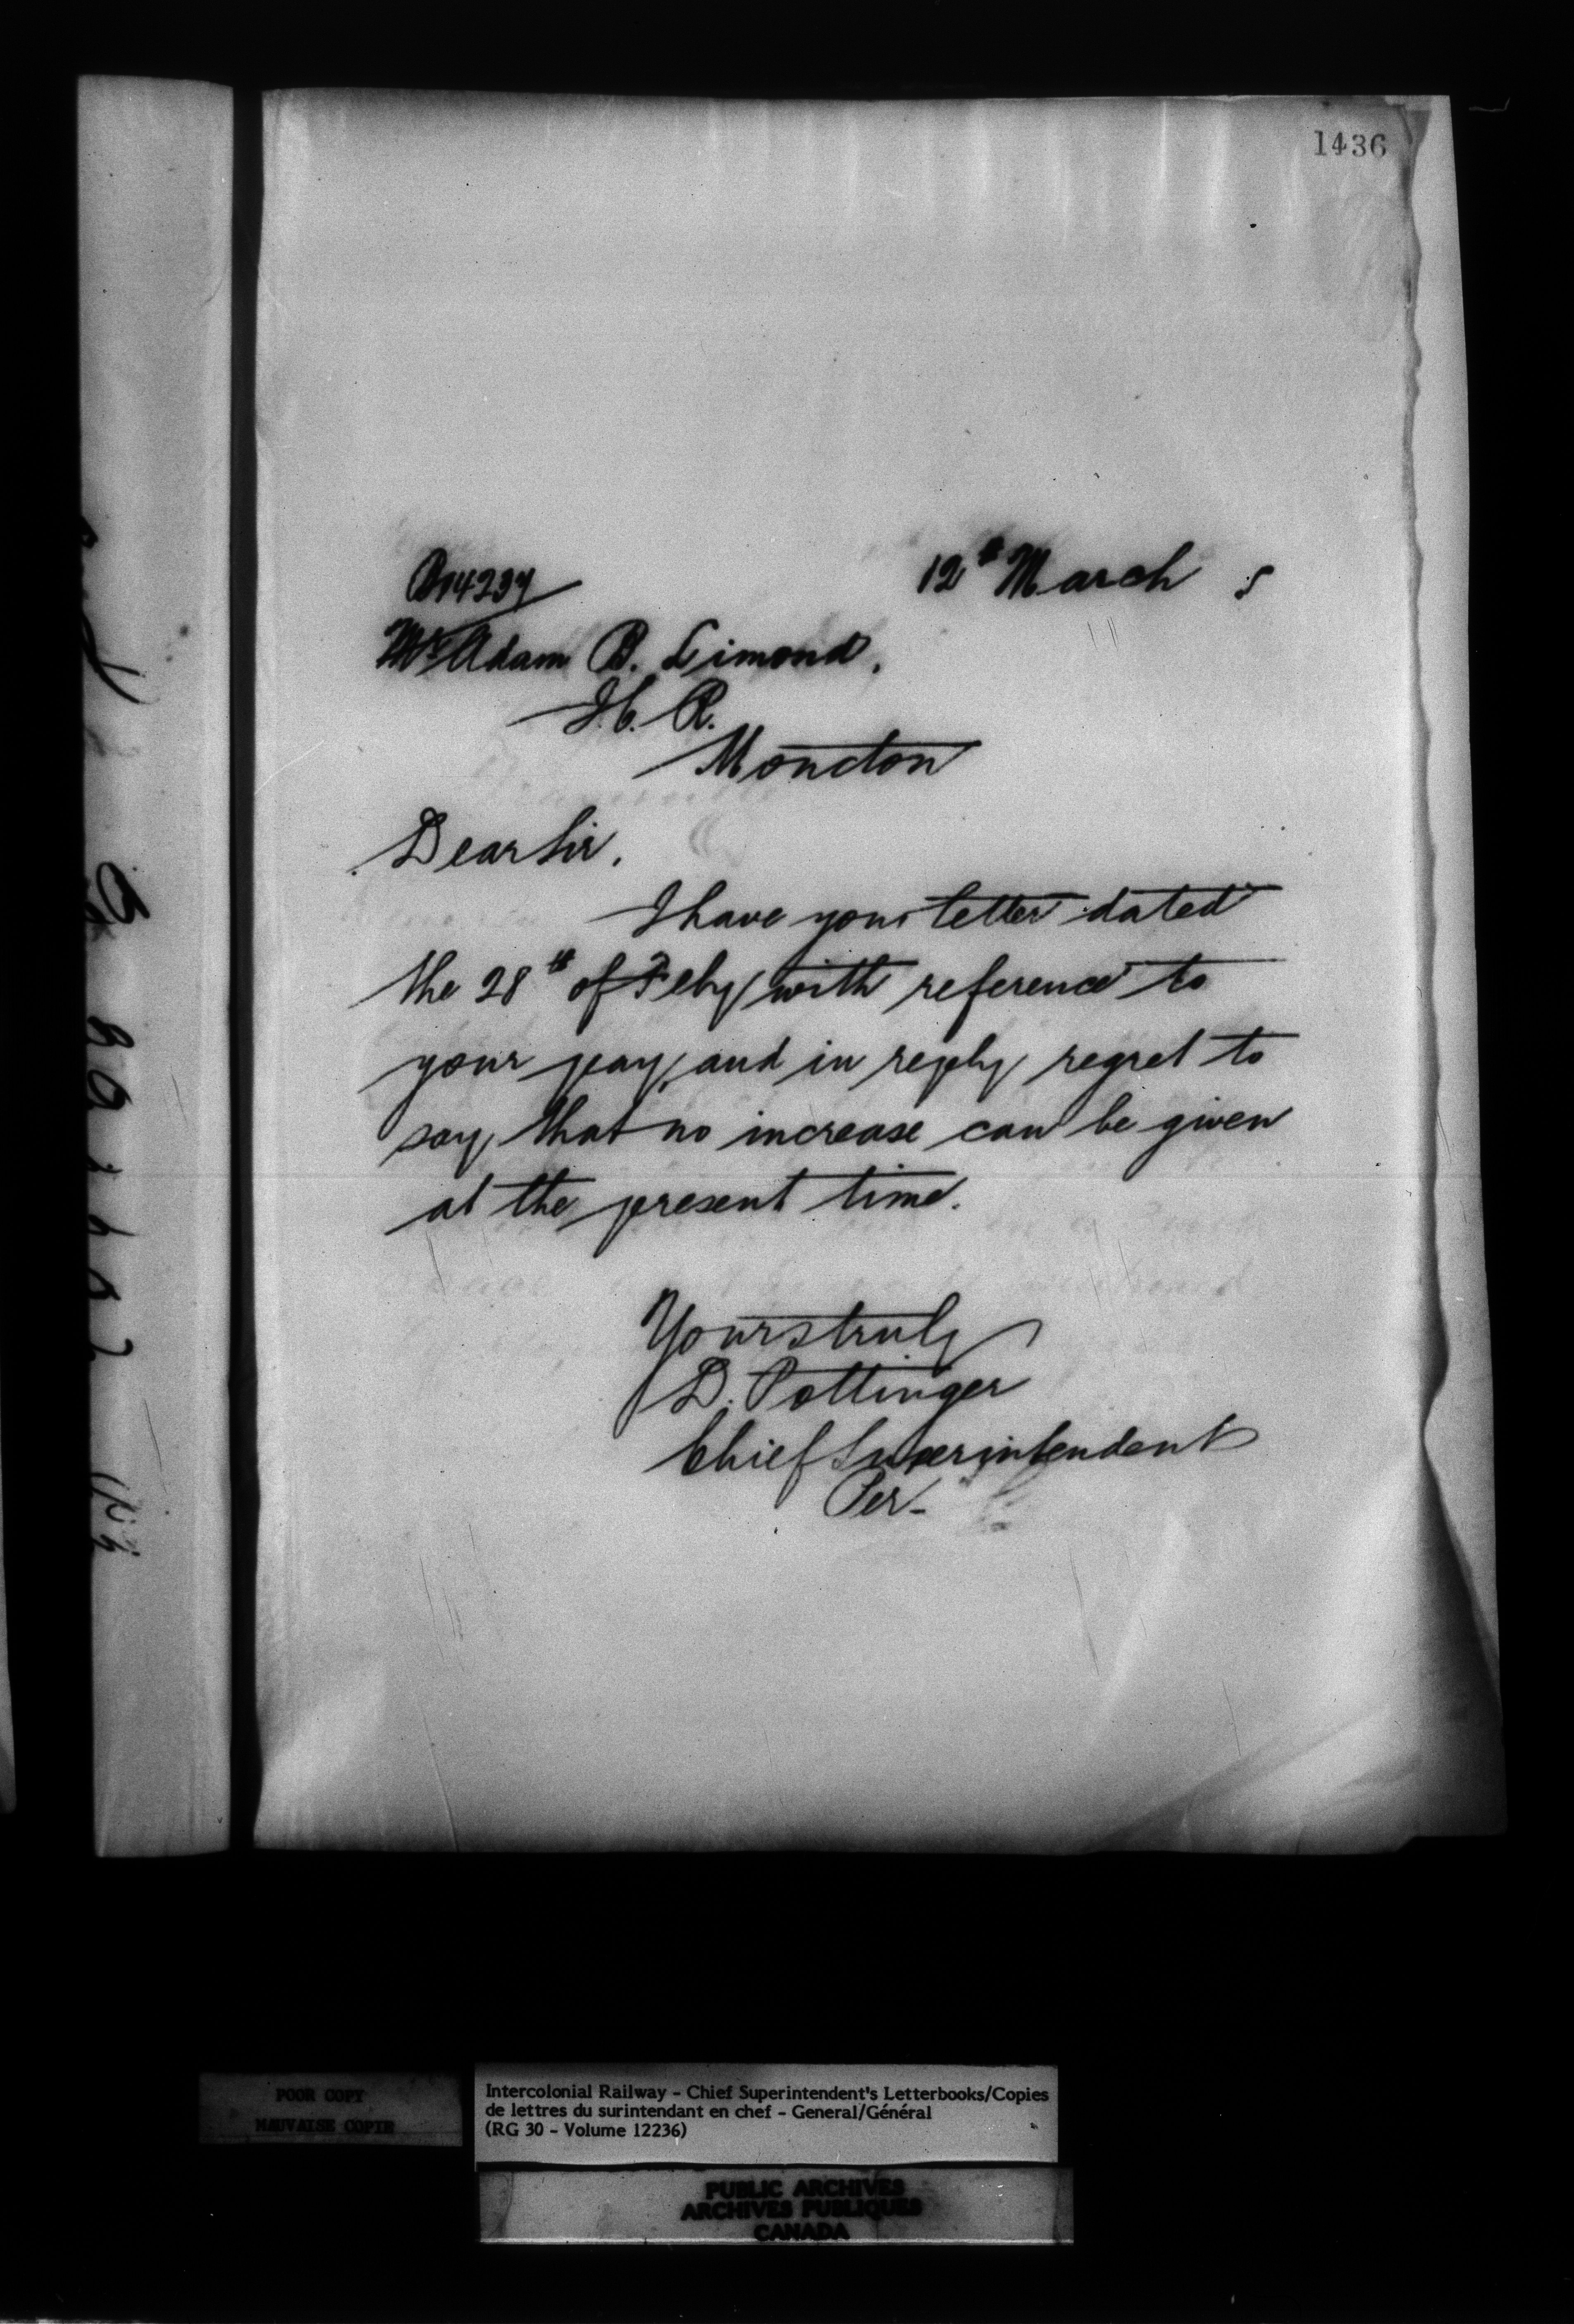 1436
B14237
12th March 5
Mr Adam B. Simond.
I.C.R.
Moncton
Dear Sir,
I have your letter dated
the 28th of Feby with reference to
your pay, and in reply regret to
say that no increase can be given
at the present time.
Yours truly
D. Pottinger
Chief Superintendent
Per-
POOR COPY
MAUVAISE COPIE
Intercolonial Railway - Chief Superintendent's Letterbooks/Copies
de lettres du surintendant en chef - General/Général
(RG 30 - Volume 12236)
PUBLIC ARCHIVES
ARCHIVES PUBLIQUES
CANADA